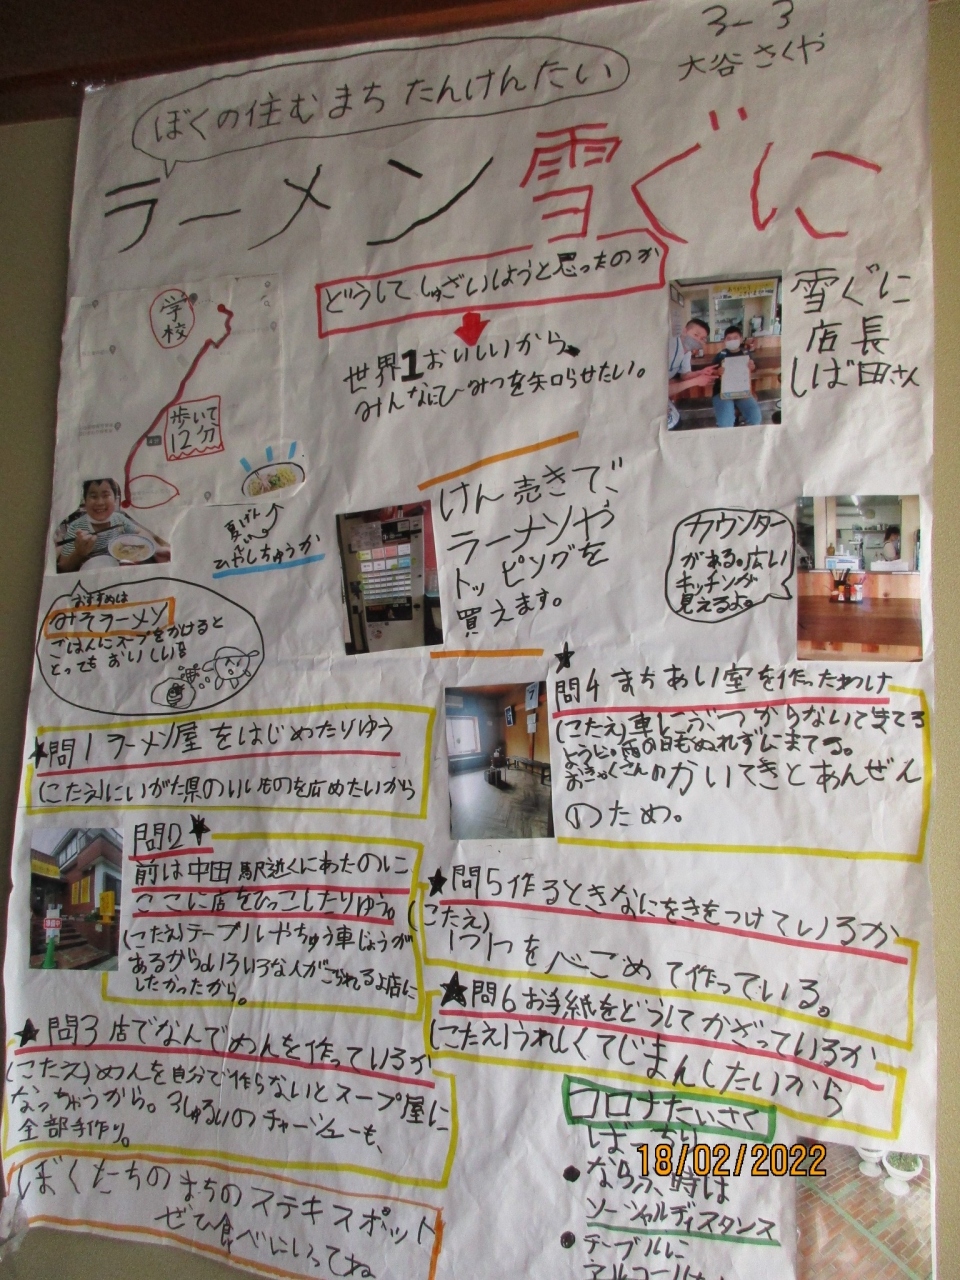 3-3
大谷さくや
ぼくの住むまち たんけんたい
ラーメン雪ぐに
どうしてしゅざいしようと思ったのか
世界1おいしいから、
みんなにひみつを知らせたい。
雪ぐに
店長
しば田さん
学校
歩いて
12分
夏げんてい
ひやしちゅうか
けん売きで、
ラーメンや
トッピングを
買えます。
カウンター
がある。広い
キッチンが
見えるよ。
おすすめは
みそラーメン
ごはんにスープをかけると
とってもおいしい
★問1 ラーメン屋をはじめたりゆう
(こたえ)にいがた県のいいものを広めたいから
問2★
前は中田駅近くにあたのに
ここに店をひっこしたりゆう。
(こたえ)テーブルやちゅう車じょうが
あるからいろいろな人がこられるよ店に
したかったから。
★問3 店でなんでめんを作っているか
(こたえ)めんを自分で作らないとスープ屋に
なっちゃうから。3しゅるいのチャーシューも、
全部手作り。
ぼくたちのまちのステキスポット
ぜひ食べにいってね
★
問4 まちあい室を作ったわけ
(こたえ)車にぶつからないでまてる
ように。雨の日もぬれずにまてる。
おきゃくさんのかいてきとあんぜん
のため。
★問5 作るときなにをきをつけているか
(こたえ)
1つ1つを心をこめて作っている。
★問6 お手紙をどうしてかざっているか
(こたえ)うれしくてじまんしたいから
コロナたいさく
ばっちり
●ならぶ時は
ソーシャルディスタンス
●テーブルに
アルコール
18/02/2022